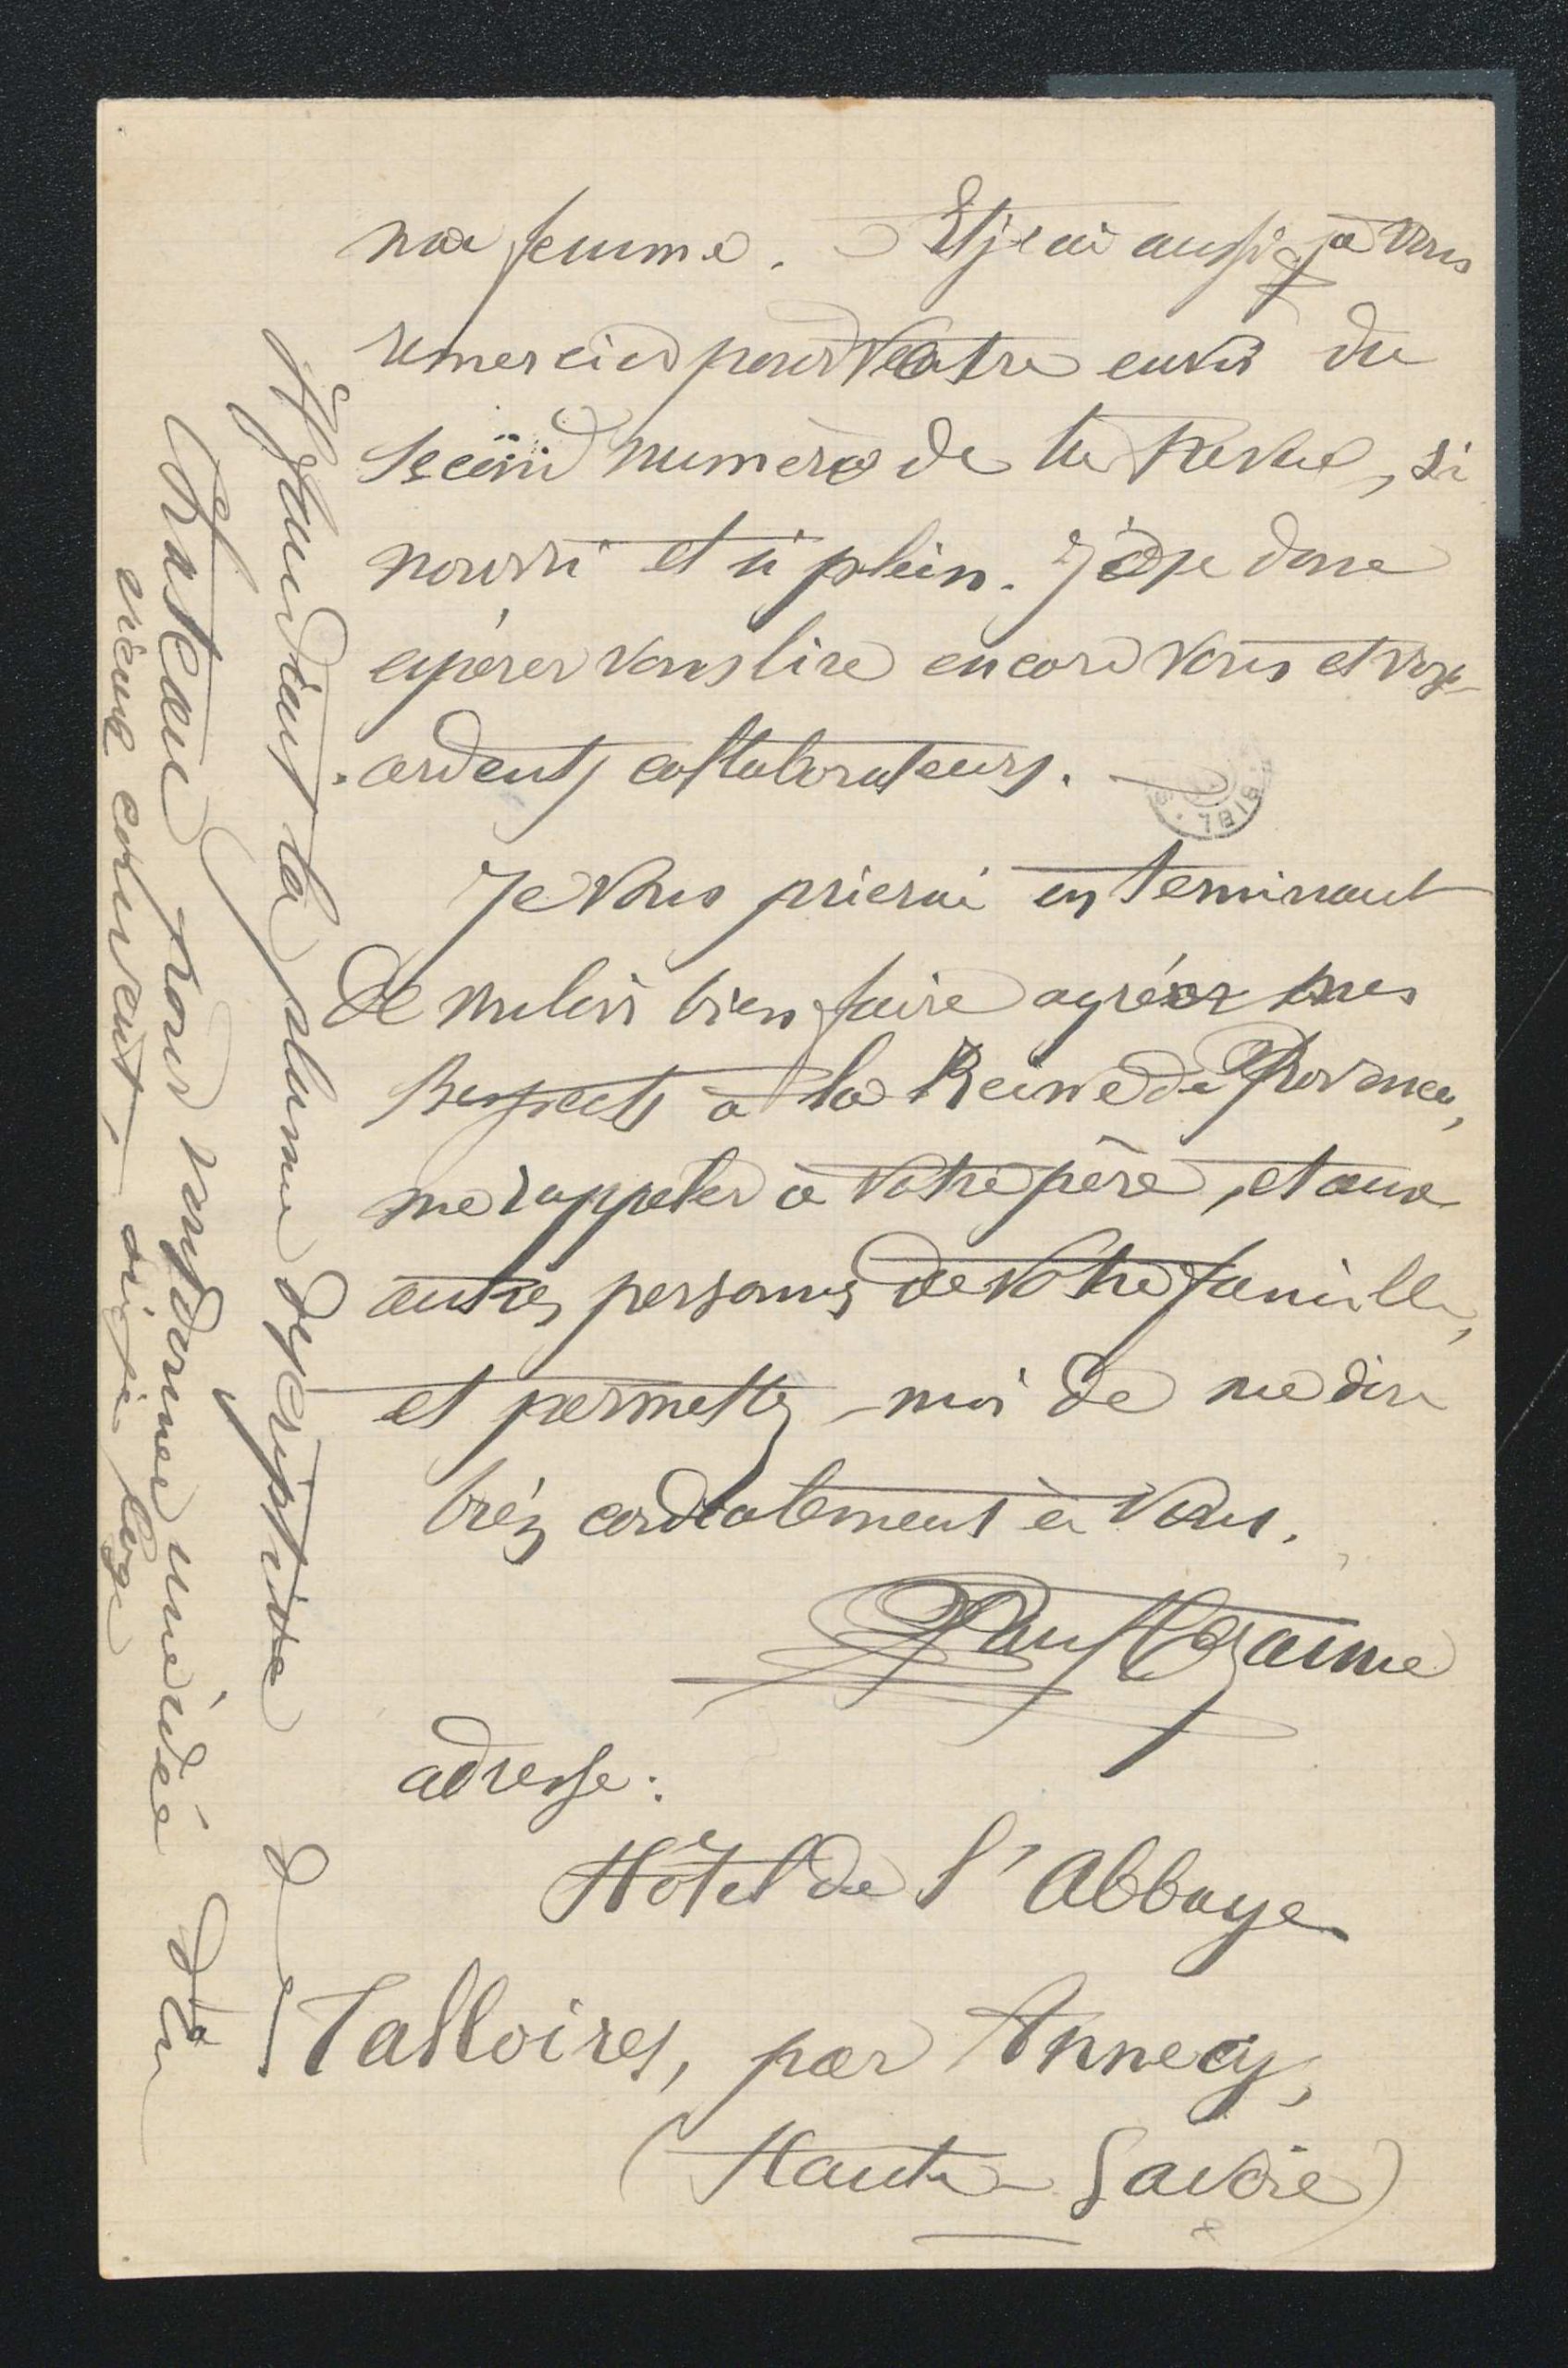 ma femme. — Et j'ai aussi à vous
remercier pour votre envoi du
second numéro de la Revue, si
nourri et si plein. J'ose donc
espérer vous lire encore vous et vos
ardents collaborateurs. —
Je vous prierai en terminant
de vouloir bien faire agréer mes
Respects à la Reine de Provence,
me rappeler à votre père, et aux
autres personnes de votre famille,
et permettez-moi de me dire
très cordialement à vous.
Paul
adresse:
Hôtel de l'Abbaye
Talloires, par Annecy,
(Haute-Savoie)
Il faudrait la plume descriptive de
Chateau pour vous donner une idée d'un
vieux couvent, où je loge
BIBL